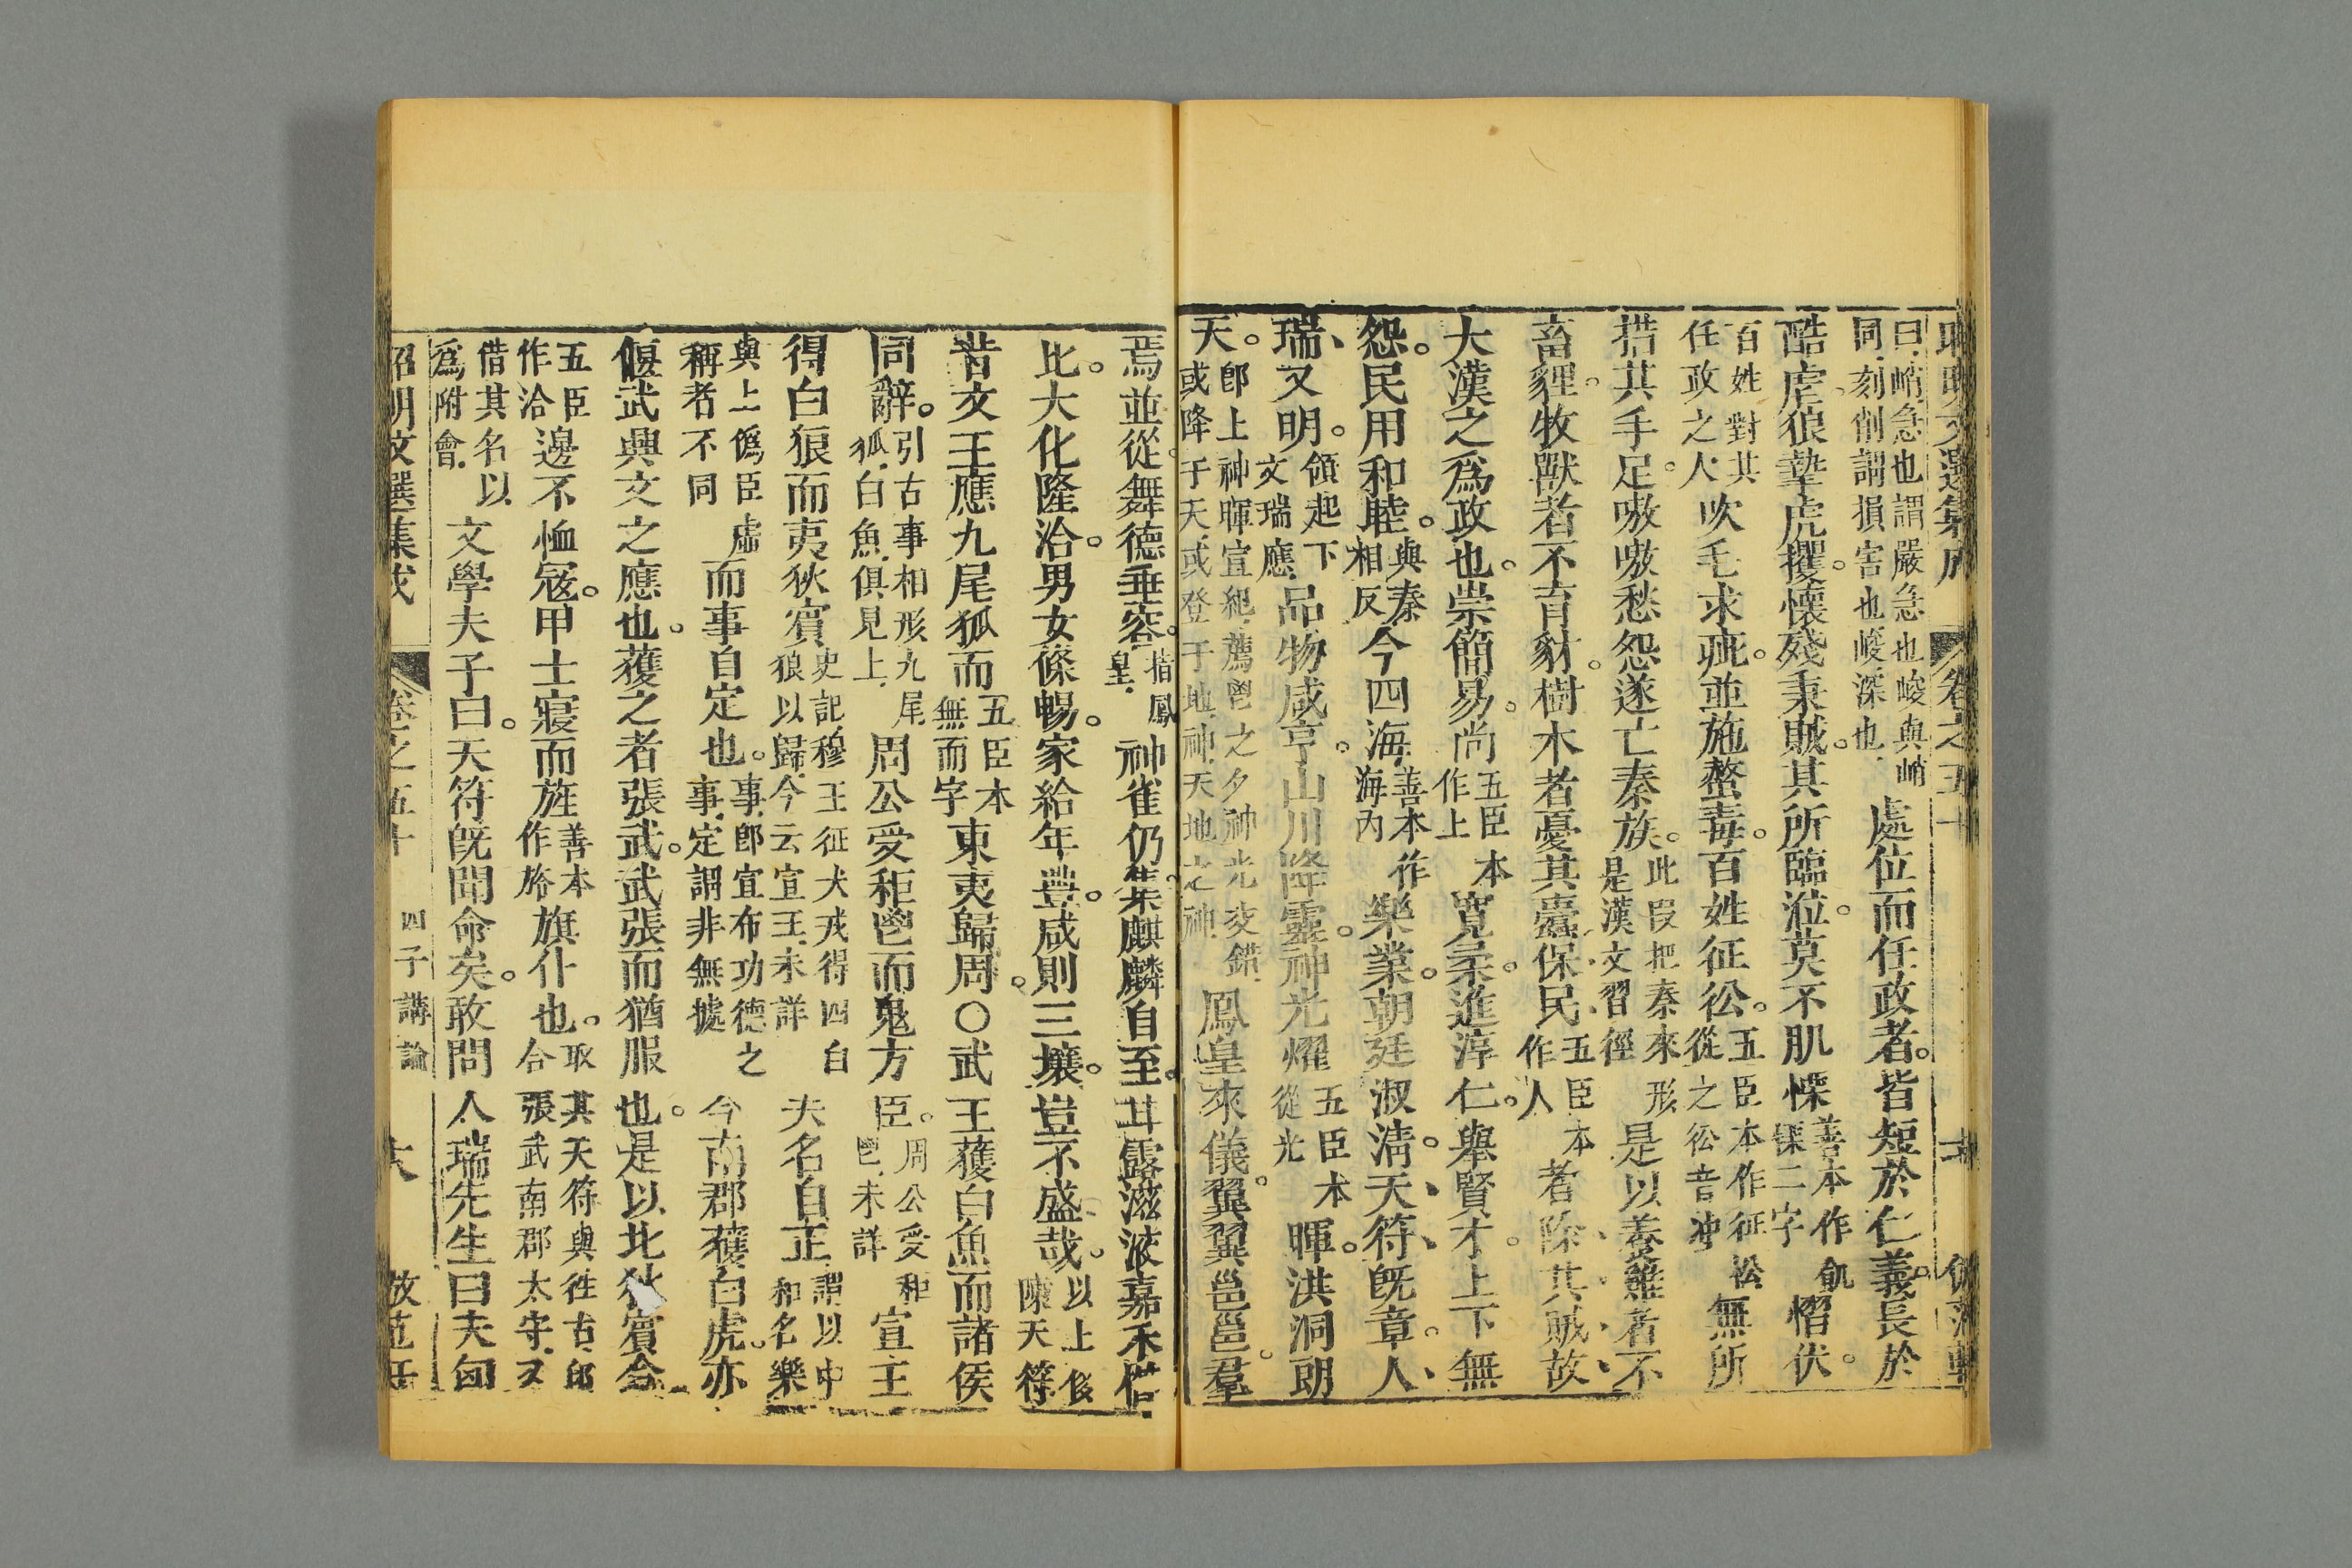 昭明文選集成 卷之五十
曰峭急也謂嚴急也峻與峭同刻削謂損害也峻深也處位而任政者皆短於仁義長於
酷虐狼摯虎攫懷殘秉賊其所臨涖莫不肌慄善本作飢慄二字慴伏
百姓對其任政之人吹毛求疵並施螫毒百姓征彸五臣本作征忪從之彸音沖無所
措其手足嗷嗷愁怨遂亡秦族此段把秦來形是漢文習徑是以養雞者不
畜貍牧獸者不育豺樹木者憂其蠹保民五臣本作人者除其賊故
大漢之爲政也崇簡易尚五臣本作上寬柔進淳仁舉賢才上下無
怨民用和睦與秦相反今四海善本作海內樂業朝廷淑淸天符旣章人
瑞又明領起下文瑞應品物咸亨山川降靈神光燿五臣本從光暉洪洞朗
天卽上神暉宣紀薦鬯之夕神光交錯或降于天或登于地神天地之神鳳皇來儀翼翼邕邕羣
焉並從舞德垂容指鳳皇神雀仍集麒麟自至甘露滋液嘉禾櫛
比大化隆洽男女條暢家給年豐咸則三壤豈不盛哉以上陳天符
昔文王應九尾狐而五臣本無而字東夷歸周○武王獲白魚而諸侯
同辭引古事相形九尾狐白魚俱見上周公受秬鬯而鬼方臣周公受秬鬯未詳宣王
得白狼而夷狄賓史記穆王征犬戎得四白狼以歸今云宣王未詳夫名自正謂以中和名樂
與上僞臣虛稱者不同而事自定也事卽宣布功德之事定謂非無據今南郡獲白虎亦
偃武興文之應也獲之者張武武張而猶服也是以北狄賓合
五臣作洽邊不恤寇甲士寢而旌善本作旍旗仆也取其天符與往古合張武南郡太守又
借其名以爲附會文學夫子曰天符旣聞命矣敢問人瑞先生曰夫匈
昭明文選集成 卷之五十 四子講論 六